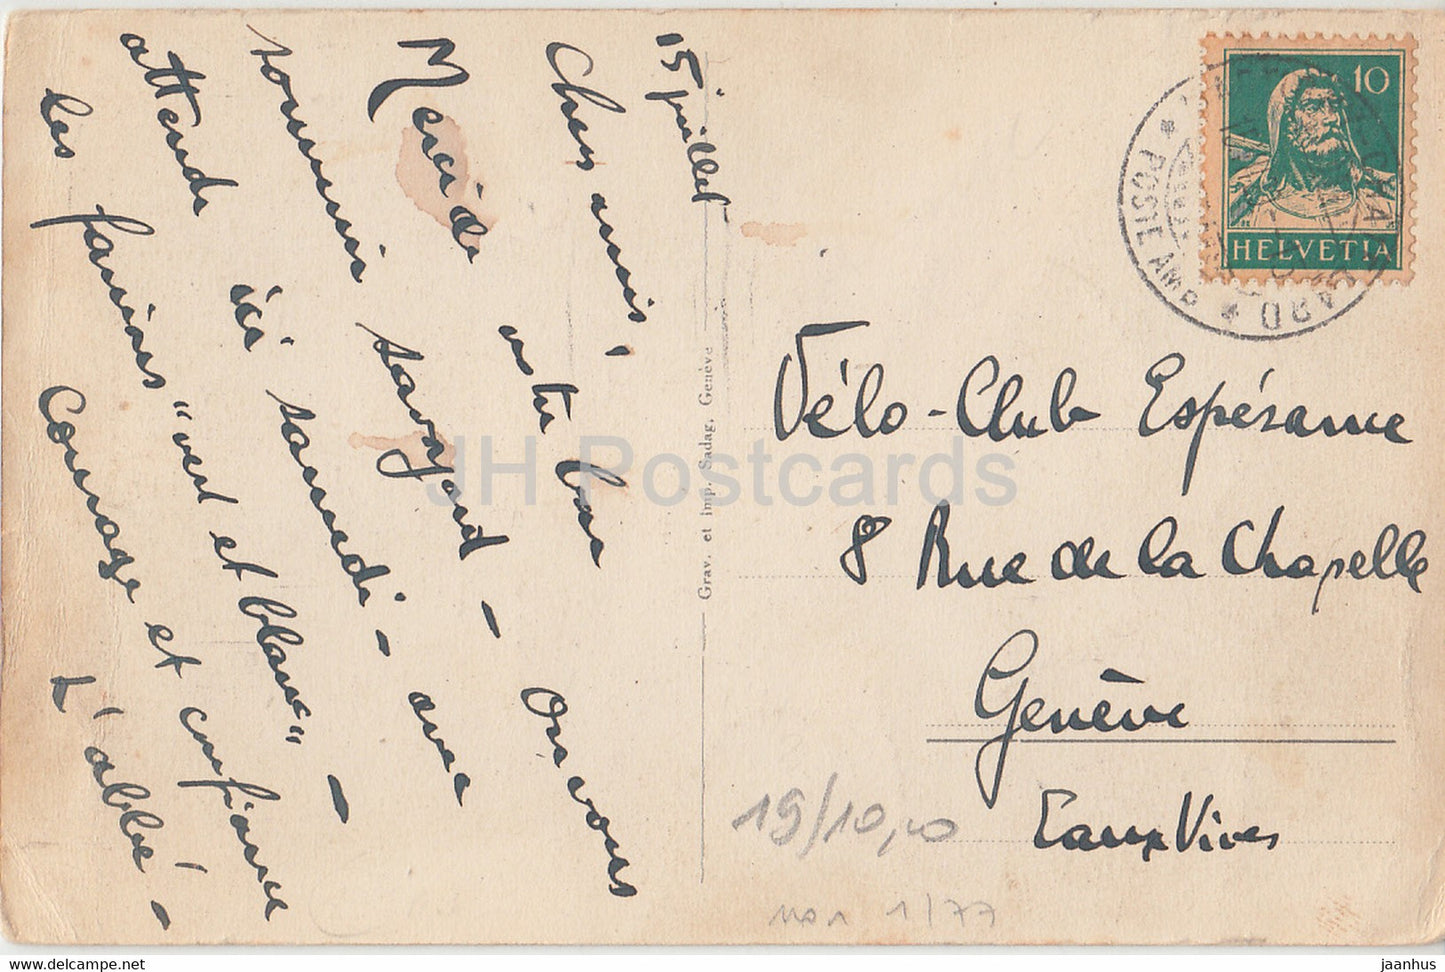 15 juillet
Chers amis,
Merci de votre bon
souvenir savoyard - On vous
attend ici samedi - avec
les fanions "vert et blanc" -
Courage et confiance
L'abbé -
Grav. et imp. Sadag, Genève
10
HELVETIA
POSTE AMB
Vélo-Club Espérance
8 Rue de la Chapelle
Genève
Eaux Vives
19/10,00
1/77
JH Postcards
www.delcampe.net
jaanhus